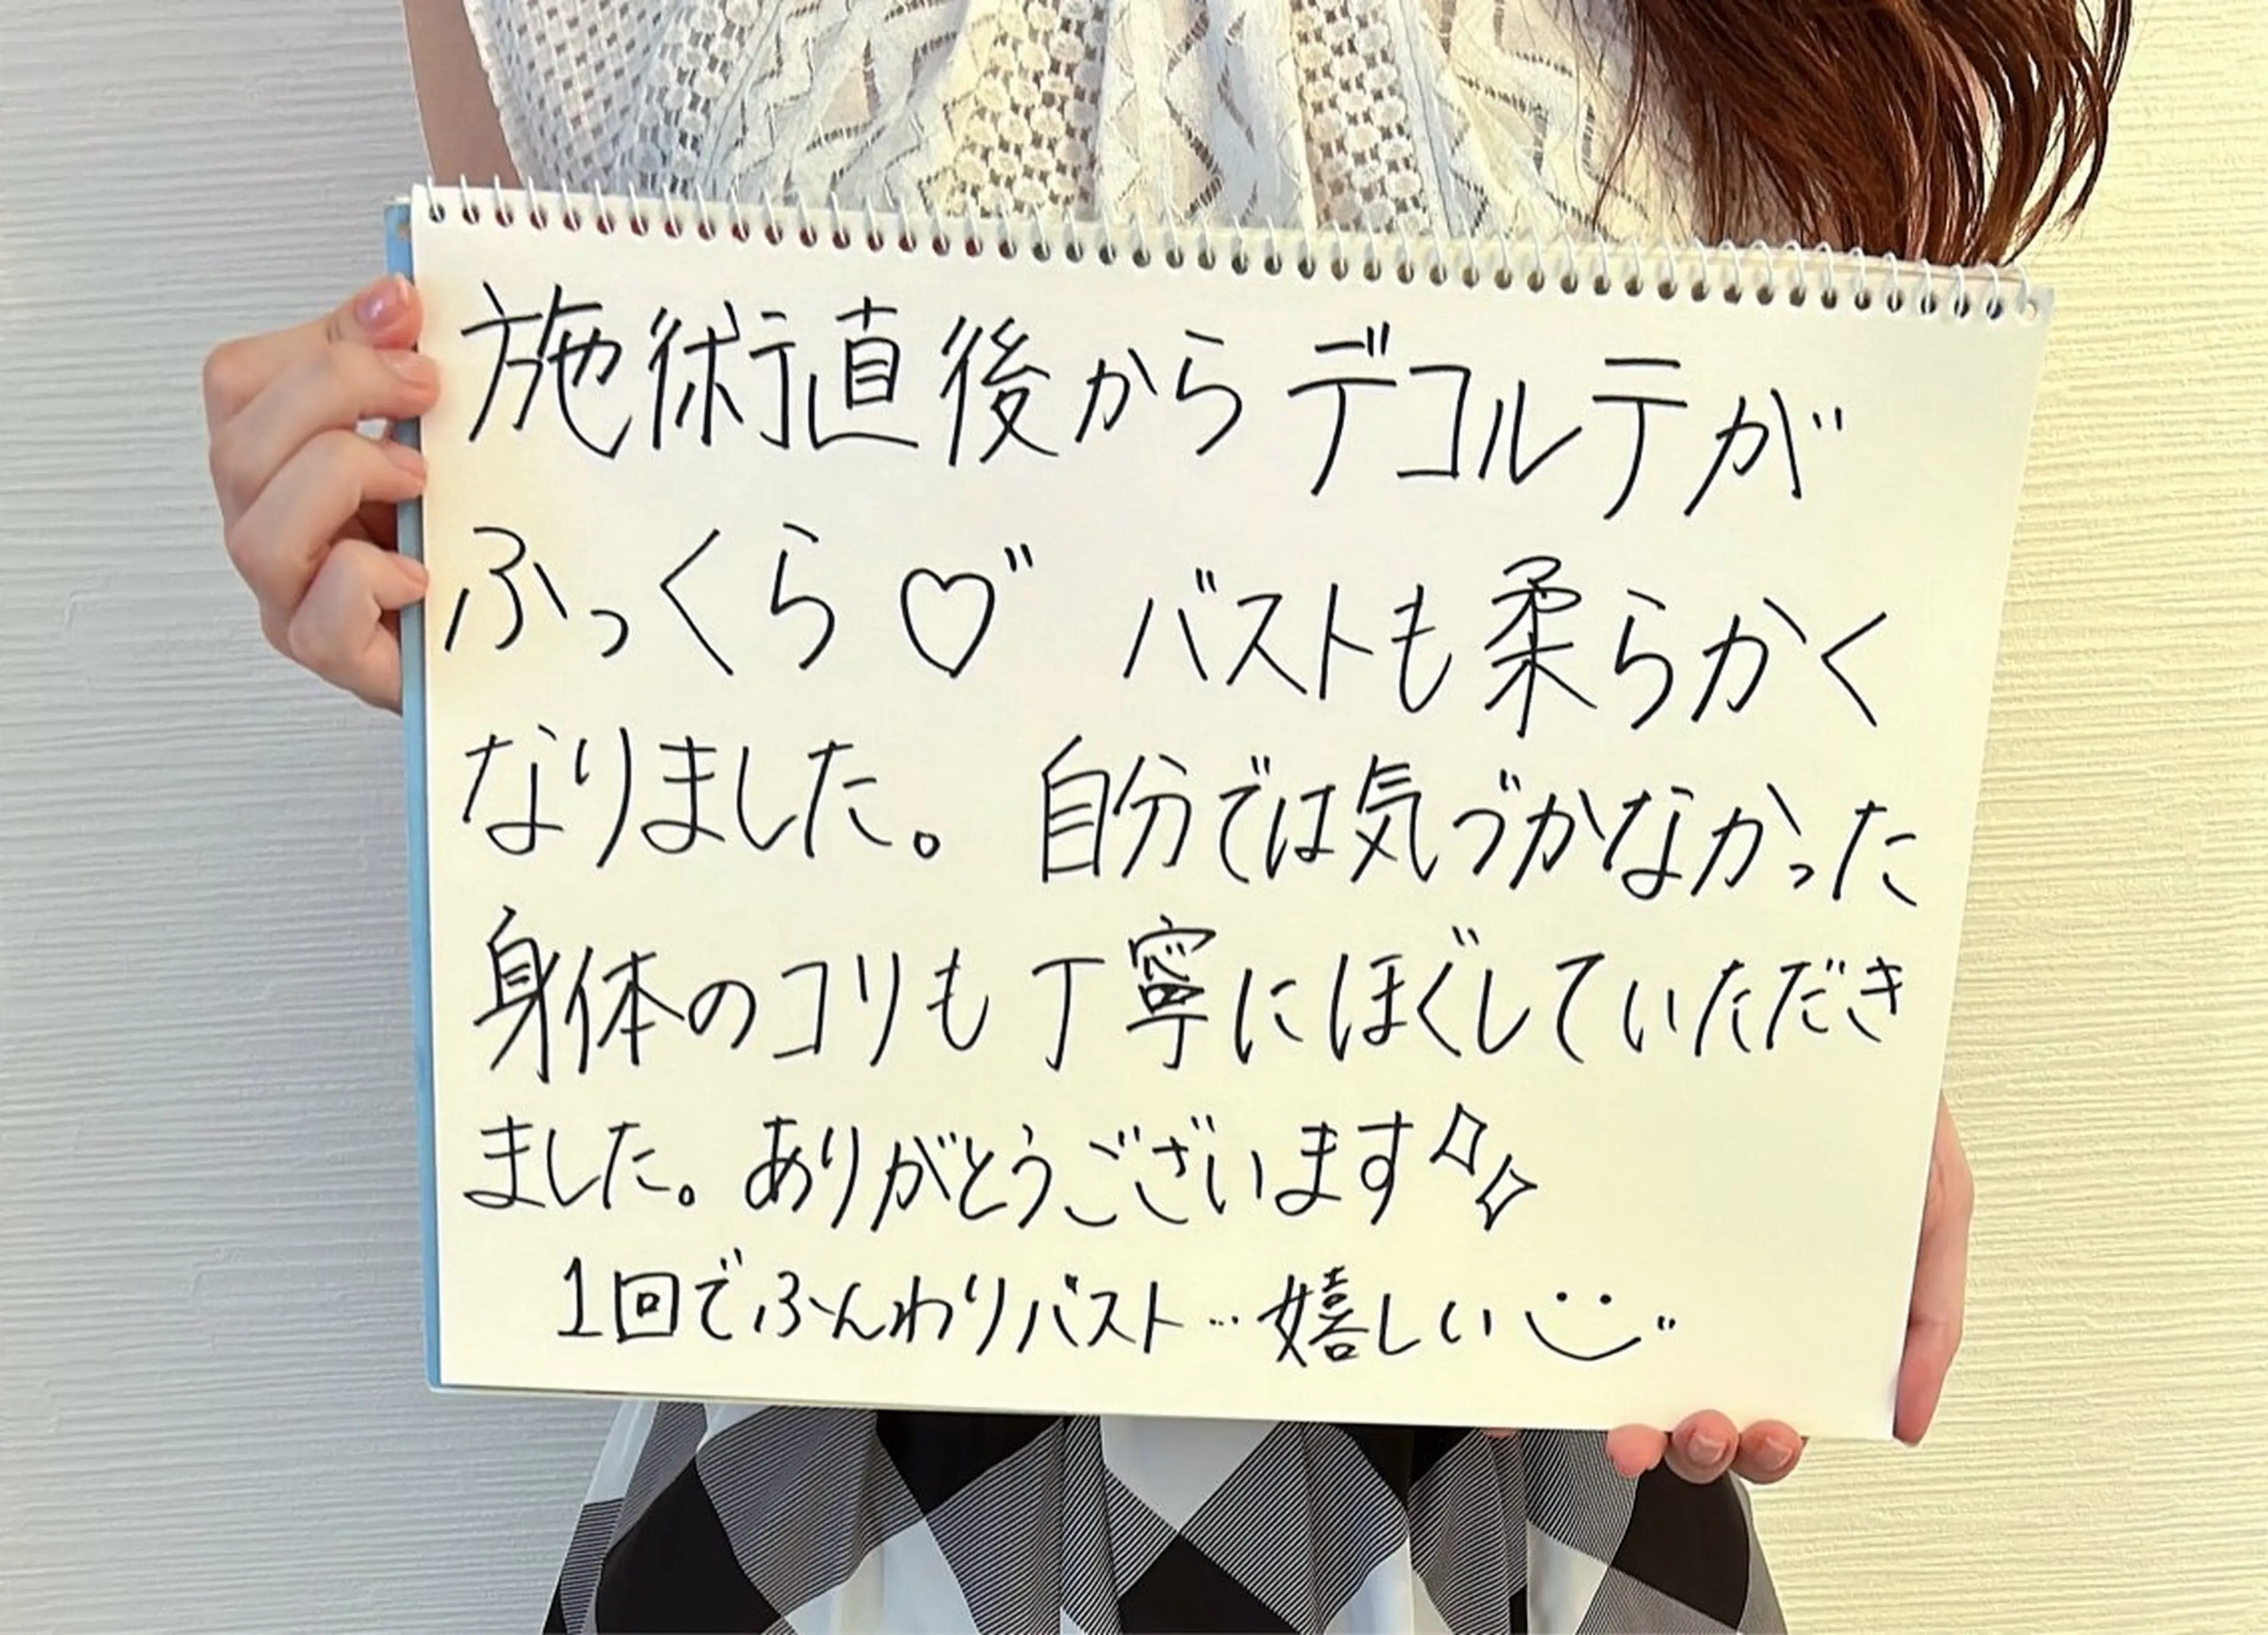 施術直後からデコルテが
ふっくら♡゛ バストも柔らかく
なりました。自分では気づかなかった
身体のコリも丁寧にほぐしていただき
ました。ありがとうございます✧✧
1回でふんわりバスト…嬉しい